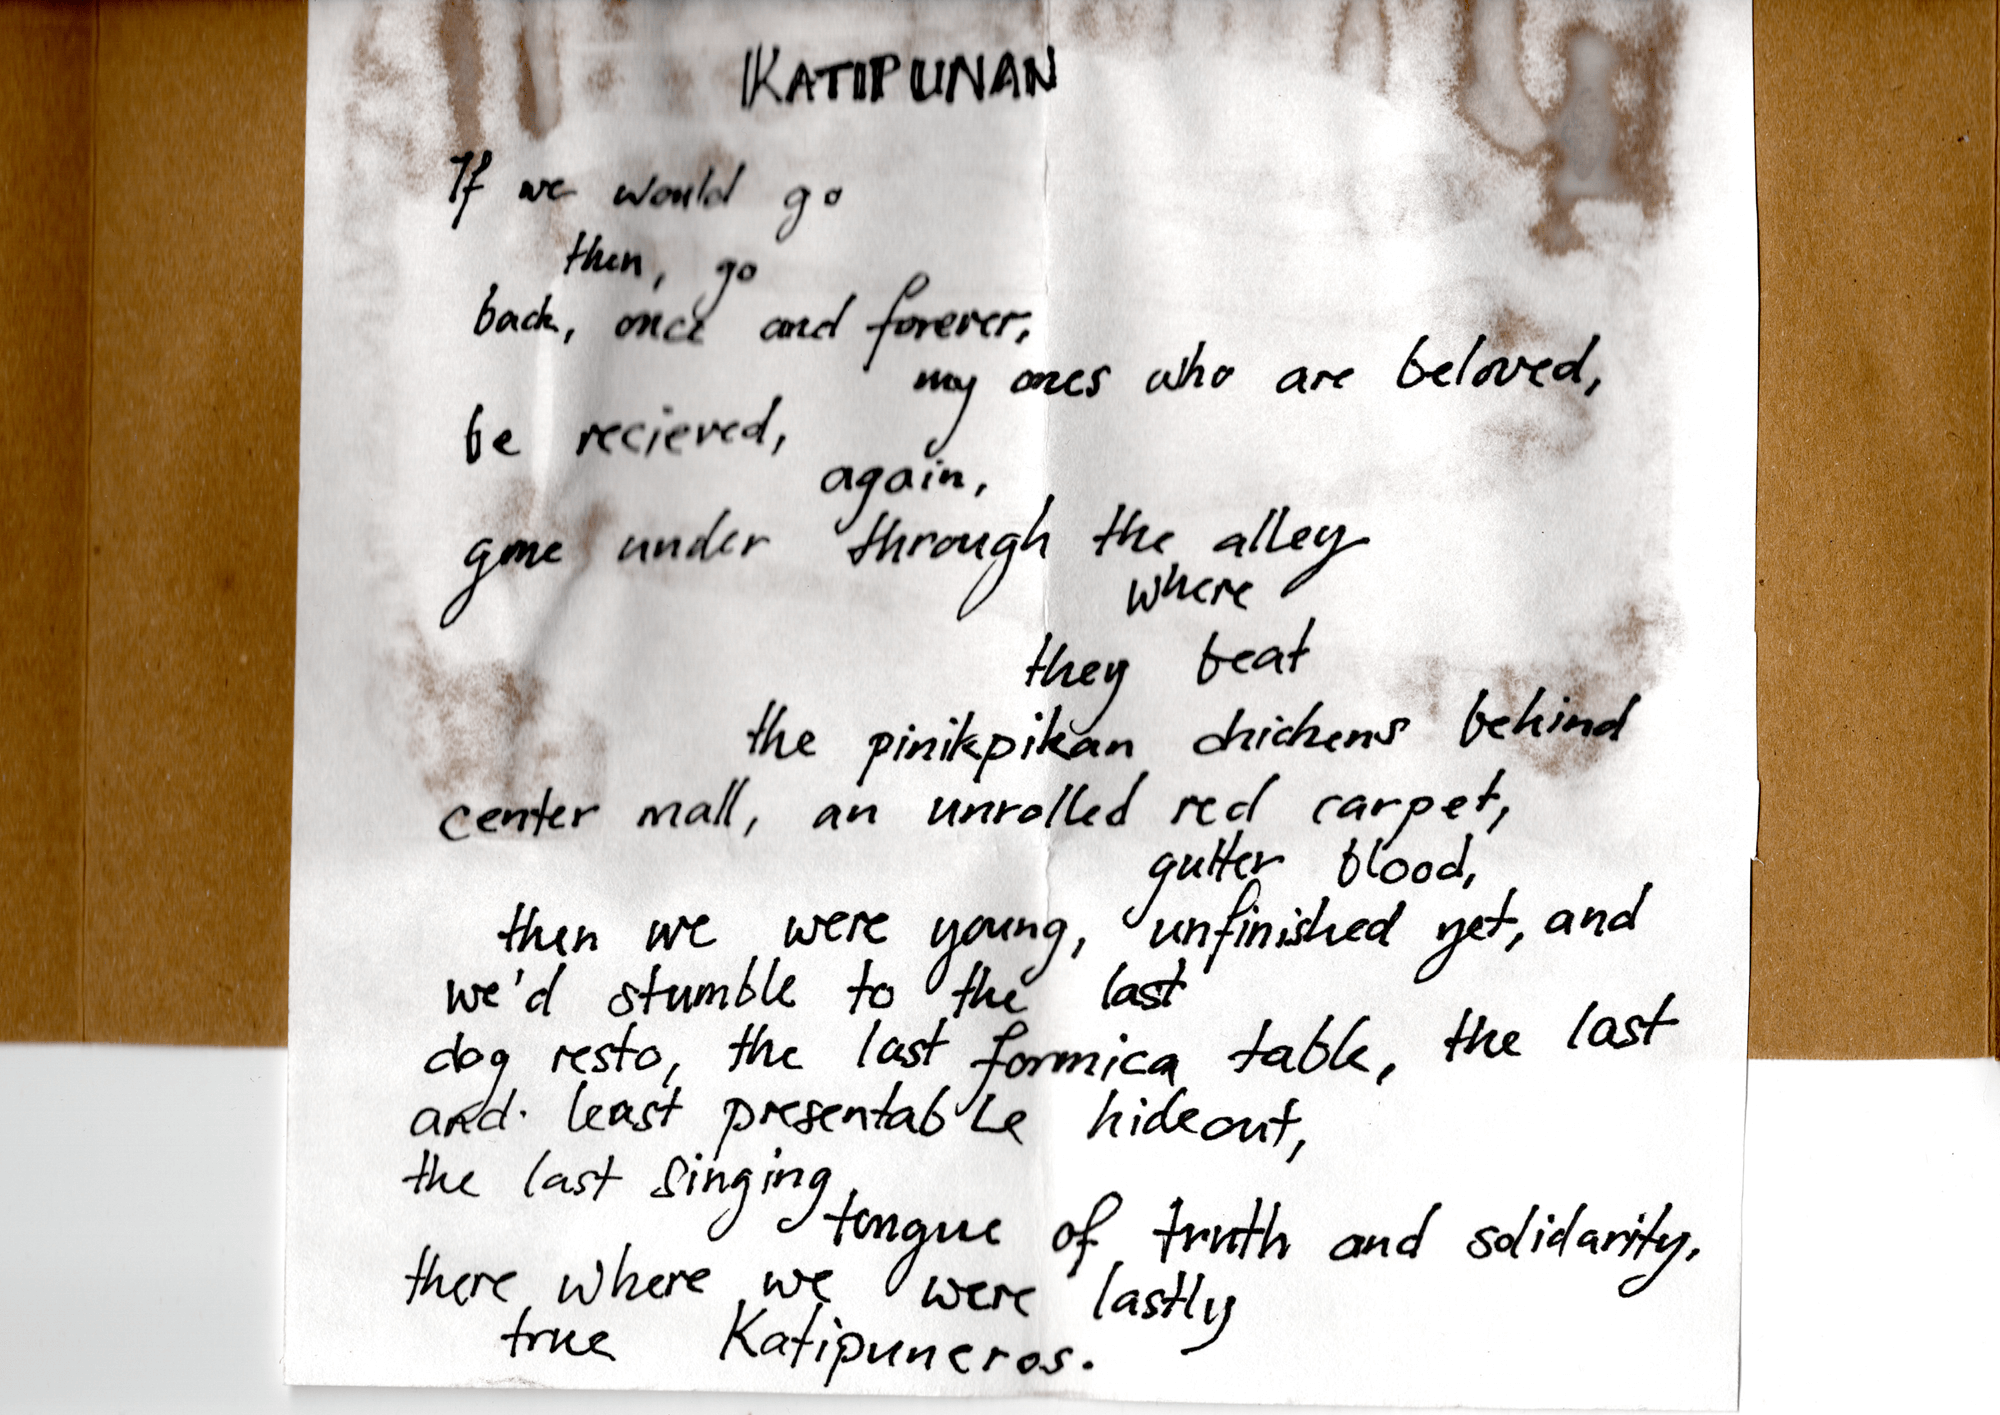 KATIPUNAN
If we would go
then, go
back, once and forever,
my ones who are beloved,
be recieved,
again,
gone under through the alley
where
they beat
the pinikpikan chickens behind
center mall, an unrolled red carpet,
gutter blood,
then we were young, unfinished yet, and
we'd stumble to the last
dog resto, the last formica table, the last
and least presentable hideout,
the last singing
tongue of truth and solidarity,
there where we were lastly
true Katipuneros.